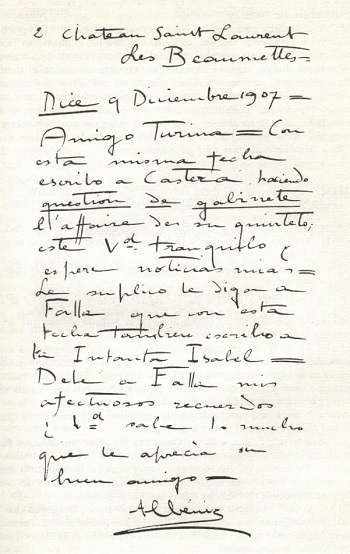 2 Chateau Saint Laurent
Les Beaumettes =
Nice 9 Diciembre 1907 =
Amigo Turina = Con
esta misma fecha
escribo a Castéra, haciendo
question de gabinete
l'affaire de su quinteto;
este Vd. tranquilo y
espere noticias mias =
Le suplico le diga a
Falla que con esta
fecha tambien escribo a
la Infanta Isabel =
Dele a Falla mis
afectuosos recuerdos
y Vd sabe lo mucho
que le aprecia su
buen amigo =
Albéniz